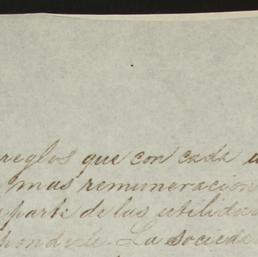 reglos que con cada u
mas remuneración
parte de las utilida
ponderle. La socieda